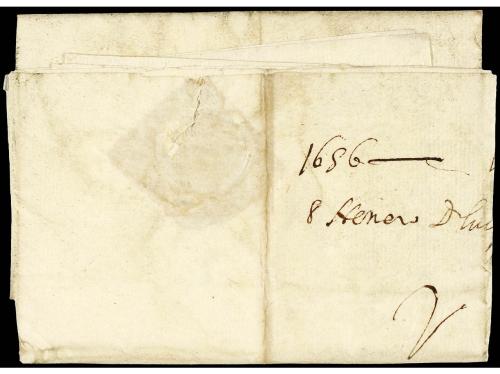 1686
8 Henero Dn
V